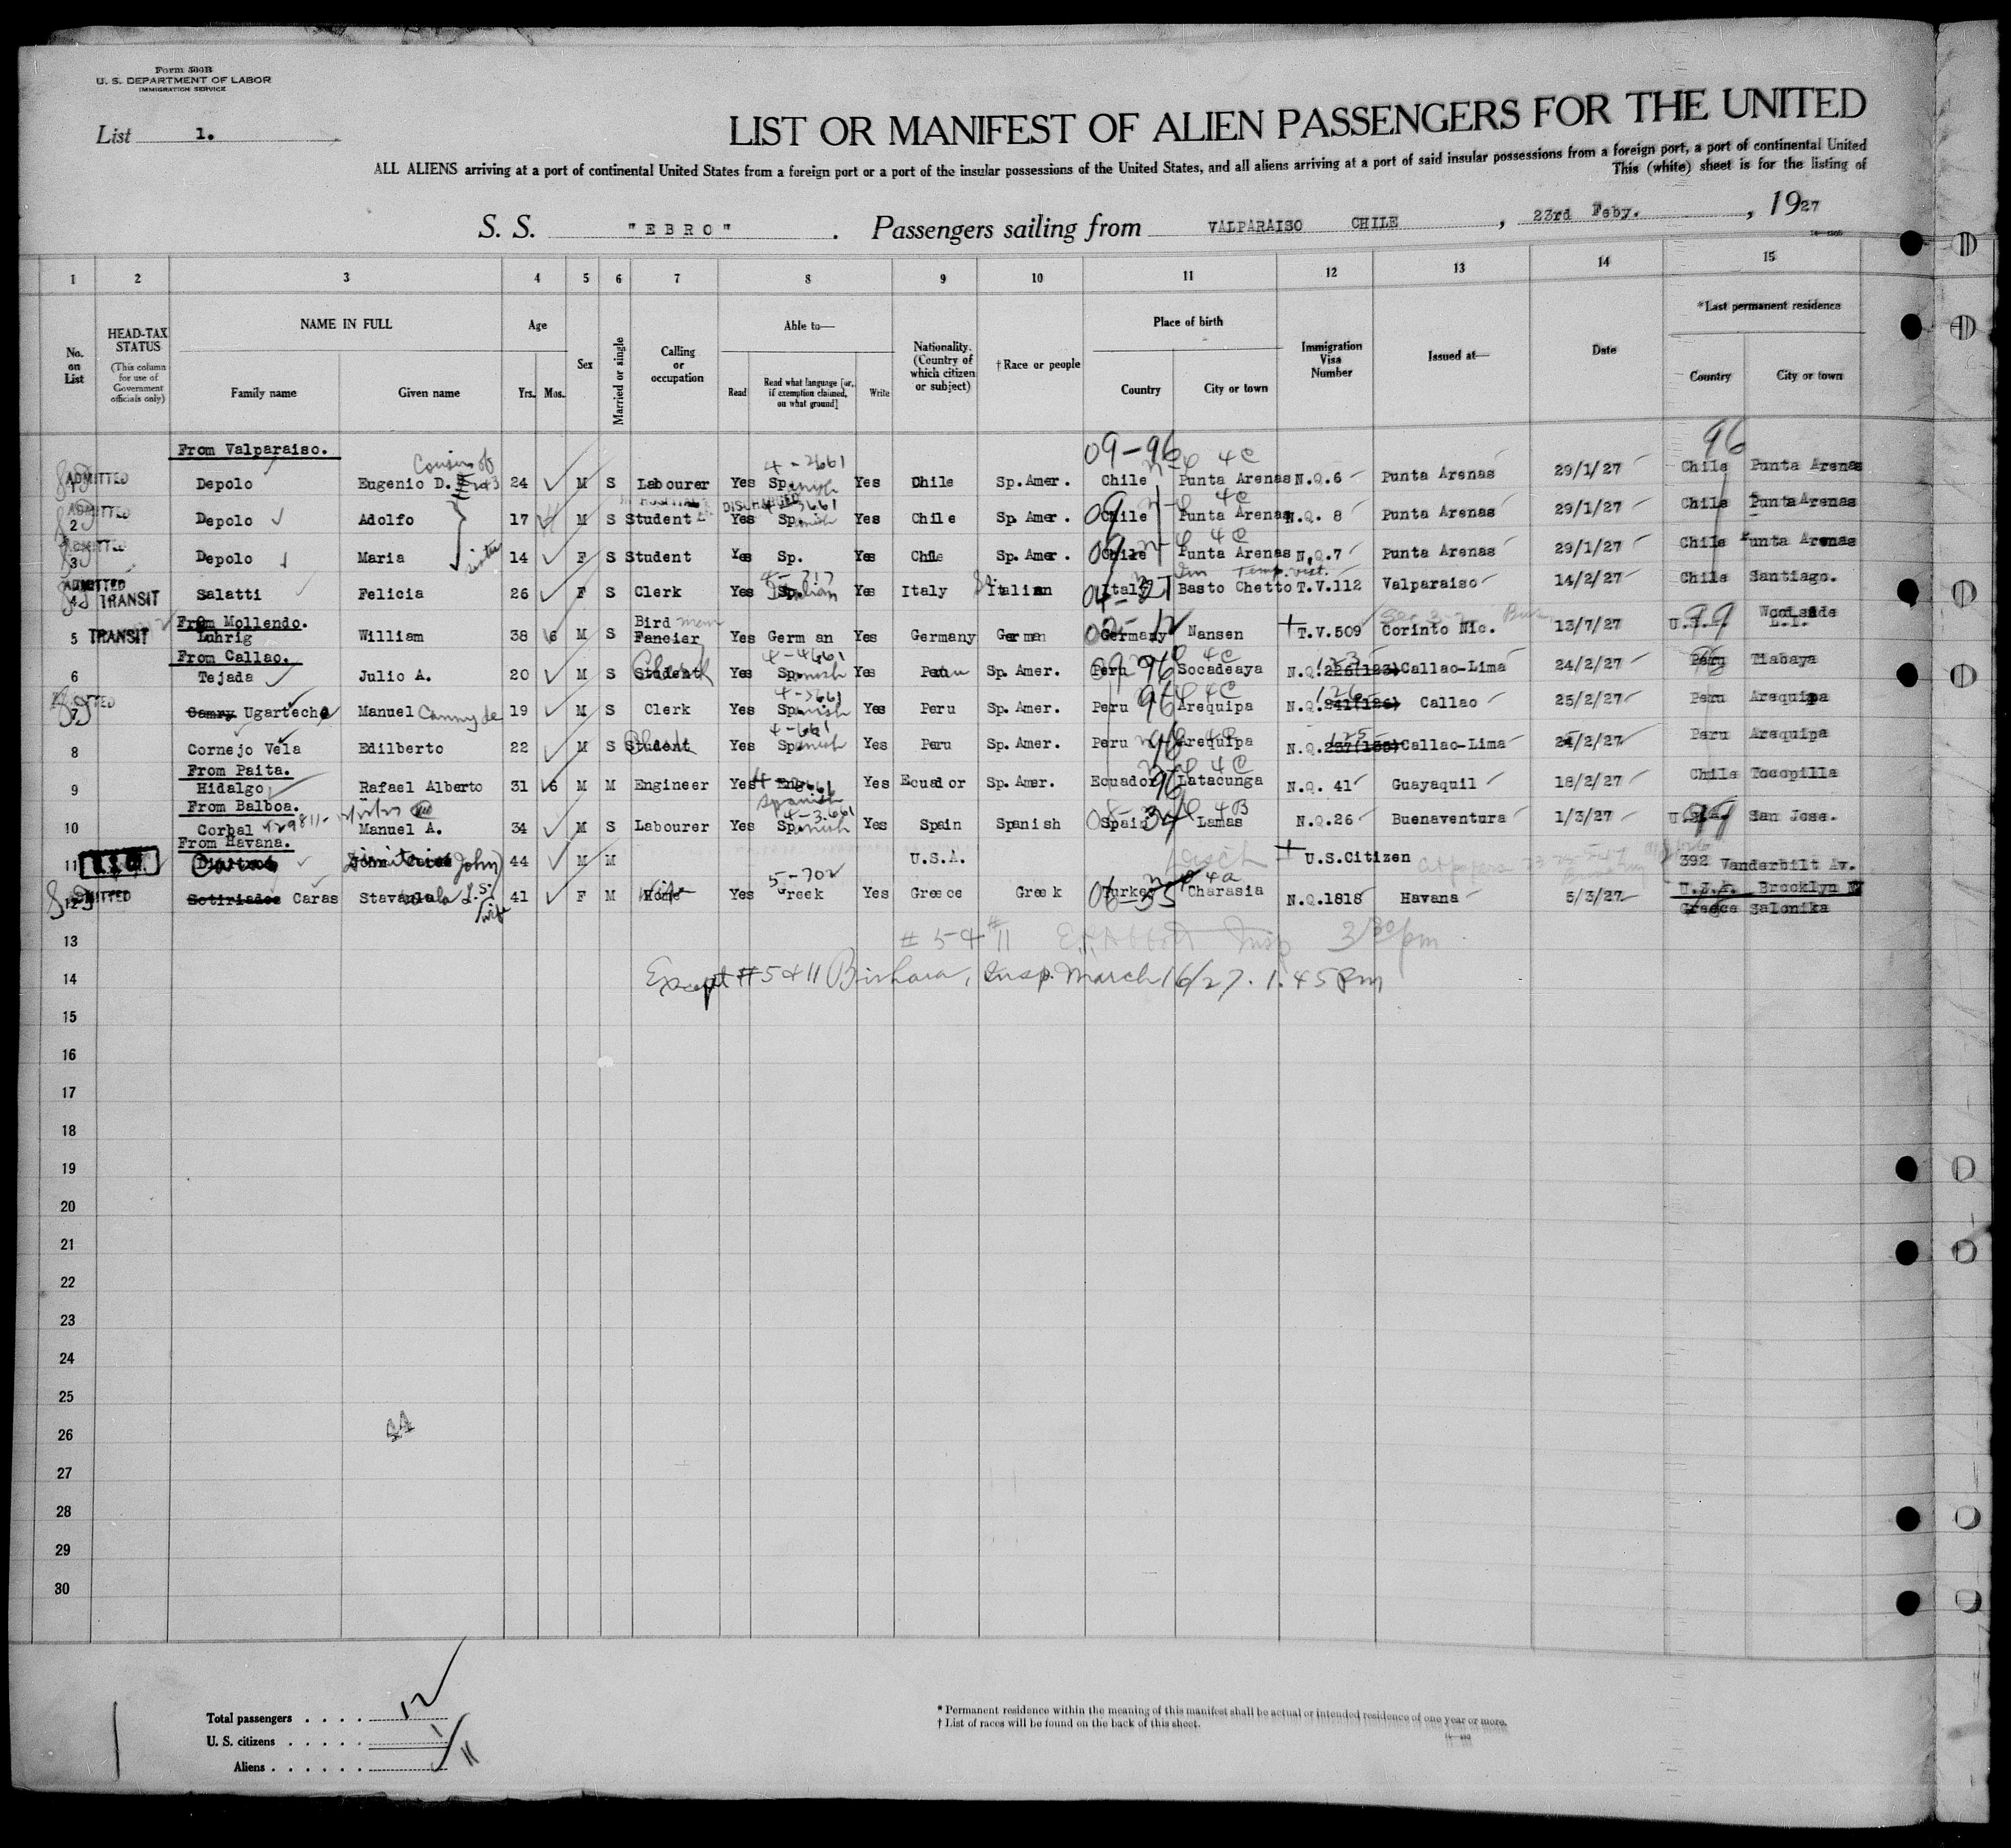 Form 500B
U. S. DEPARTMENT OF LABOR
IMMIGRATION SERVICE
List 1.
LIST OR MANIFEST OF ALIEN PASSENGERS FOR THE UNITED
ALL ALIENS arriving at a port of continental United States from a foreign port or a port of the insular possessions of the United States, and all aliens arriving at a port of said insular possessions from a foreign port, a port of continental United
This (white) sheet is for the listing of
S. S. "EBRO" . Passengers sailing from VALPARAISO CHILE , 23rd Feby. , 1927
1 2 3 4 5 6 7 8 9 10 11 12 13 14 15
No. on List
HEAD-TAX STATUS
(This column for use of Government officials only)
NAME IN FULL
Family name Given name
Age
Yrs. Mos.
Sex
Married or single
Calling or occupation
Able to—
Read Read what language [or, if exemption claimed, on what ground] Write
Nationality. (Country of which citizen or subject)
†Race or people
Place of birth
Country City or town
Immigration Visa Number
Issued at—
Date
*Last permanent residence
Country City or town
From Valparaiso. 09-96 96
Cousin of 4-3661 4C
ADMITTED 1 Depolo Eugenio D. 24 M S Labourer Yes Spanish Yes Chile Sp.Amer. Chile Punta Arenas N.Q.6 Punta Arenas 29/1/27 Chile Punta Arenas
IN HOSPITAL DISCHARGED 4C
ADMITTED 2 Depolo Adolfo 17 M S Student Yes Spanish Yes Chile Sp. Amer. Chile Punta Arenas N.Q. 8 Punta Arenas 29/1/27 Chile Punta Arenas
4C
ADMITTED 3 Depolo Maria sister 14 F S Student Yes Sp. Yes Chile Sp. Amer. Chile Punta Arenas N.Q.7 Punta Arenas 29/1/27 Chile Punta Arenas
Temp. vist.
ADMITTED 4 TRANSIT Salatti Felicia 26 F S Clerk Yes Italian Yes Italy Italian Italy Basto Chetto T.V.112 Valparaiso 14/2/27 Chile Santiago.
From Mollendo.
5 TRANSIT Luhrig William 38 6 M S Bird Fancier Yes German Yes Germany German Germany Nansen T.V.509 Corinto Nic. 13/7/27 U.S.A. Woodside L.I.
From Callao. 4-4661 4C 123
6 Tejada Julio A. 20 M S Student Yes Spanish Yes Peru Sp. Amer. Peru 96 Socadeaya N.Q. Callao-Lima 24/2/27 Peru Tiabaya
4-3661 4C 126
ADMITTED 7 Camry Ugarteche Manuel Canny de 19 M S Clerk Yes Spanish Yes Peru Sp. Amer. Peru 96 Arequipa N.Q.241(126) Callao 25/2/27 Peru Arequipa
4-661 125
8 Cornejo Vela Edilberto 22 M S Student Yes Spanish Yes Peru Sp. Amer. Peru Arequipa N.Q. Callao-Lima 24/2/27 Peru Arequipa
From Paita. 4C
9 Hidalgo Rafael Alberto 31 6 M M Engineer Yes Spanish Yes Ecuador Sp. Amer. Ecuador 96 Latacunga N.Q. 41 Guayaquil 18/2/27 Chile Tocopilla
From Balboa. 4-3661 4B
10 Corbal Manuel A. 34 M S Labourer Yes Spanish Yes Spain Spanish Spain Lamas N.Q.26 Buenaventura 1/3/27 U.S.A. San Jose.
From Havana.
11 Dimitrios John 44 M M U.S.A. U.S.Citizen 392 Vanderbilt Av.
5-702 4a U.S.A. Brooklyn NY
ADMITTED 12 Sotiriados Caras Stavaula wife 41 F M Wife Yes Greek Yes Greece Greek Turkey Charasia N.Q.1818 Havana 5/3/27 Greece Salonika
13 # 5 & #11 Insp 3 30 pm
14 Except #5 & 11 Bishara, Insp. March 16/27. 1.45 Pm
15
16
17
18
19
20
21
22
23
24
25
26
27
28
29
30
Total passengers . . . . 12
U. S. citizens . . . . . 1
Aliens . . . . . . 11
* Permanent residence within the meaning of this manifest shall be actual or intended residence of one year or more.
† List of races will be found on the back of this sheet.